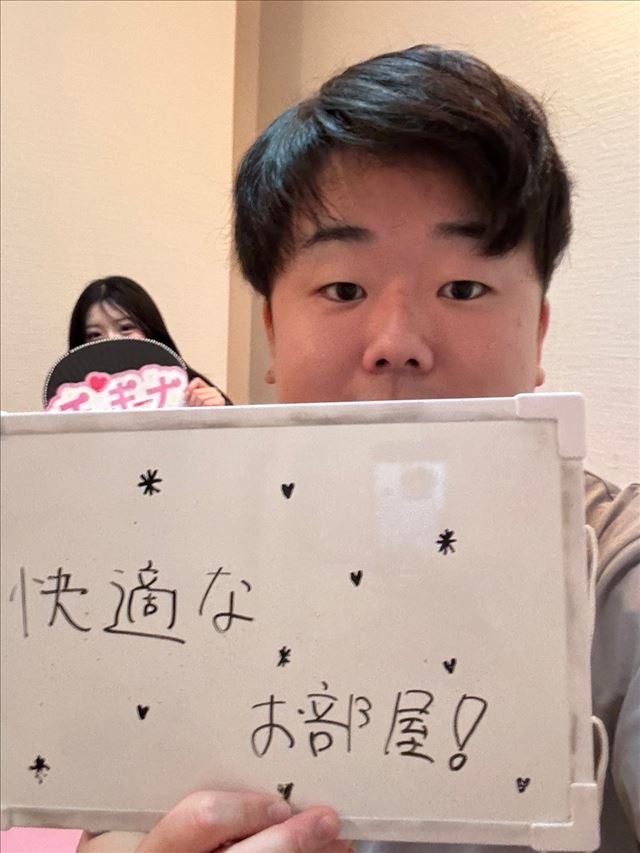 快適な
お部屋!